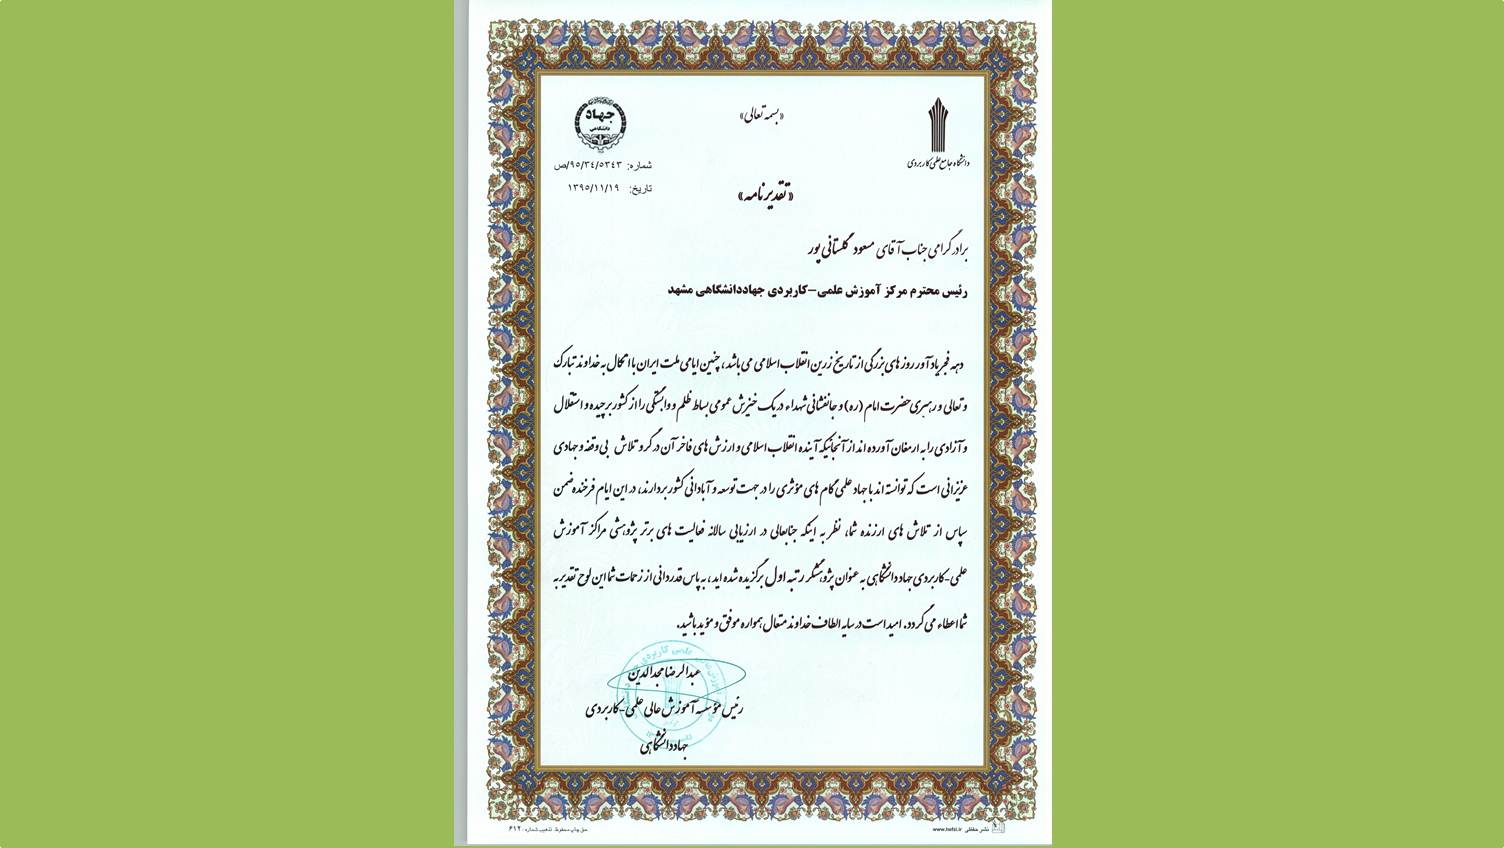 «بسمه تعالی»
جهاد
دانشگاهی
دانشگاه جامع علمی کاربردی
شماره: ۹۵/۳۴/۵۳۴۳/ص
تاریخ: ۱۳۹۵/۱۱/۱۹
«تقدیرنامه»
برادر گرامی جناب آقای مسعود گلستانی پور
رئیس محترم مرکز آموزش علمی–کاربردی جهاددانشگاهی مشهد
دهه فجر یادآور روز های بزرگی از تاریخ زرین انقلاب اسلامی می باشد، چنین ایامی ملت ایران با اتکال به خداوند تبارک
و تعالی و رهبری حضرت امام (ره) و جانفشانی شهداء در یک خیزش عمومی بساط ظلم و وابستگی را از کشور برچیده و استقلال
و آزادی را به ارمغان آورده اند از آنجائیکه آینده انقلاب اسلامی و ارزش های فاخر آن در گرو تلاش بی وقفه و جهادی
عزیزانی است که توانسته اند با جهاد علمی گام های مؤثری را در جهت توسعه و آبادانی کشور بردارند، در این ایام فرخنده ضمن
سپاس از تلاش های ارزنده شما، نظر به اینکه جنابعالی در ارزیابی سالانه فعالیت های برتر پژوهشی مراکز آموزش
علمی-کاربردی جهاد دانشگاهی به عنوان پژوهشگر رتبه اول برگزیده شده اید، به پاس قدردانی از زحمات شما این لوح تقدیر به
شما اعطاء می گردد. امید است در سایه الطاف خداوند متعال همواره موفق و مؤید باشید.
عبدالرضا مجدالدین
رئیس مؤسسه آموزش عالی علمی-کاربردی
جهاددانشگاهی
نشر حفظی www.hefzi.ir
حق چاپ محفوظ. تذهیب شماره: ۶۱۲